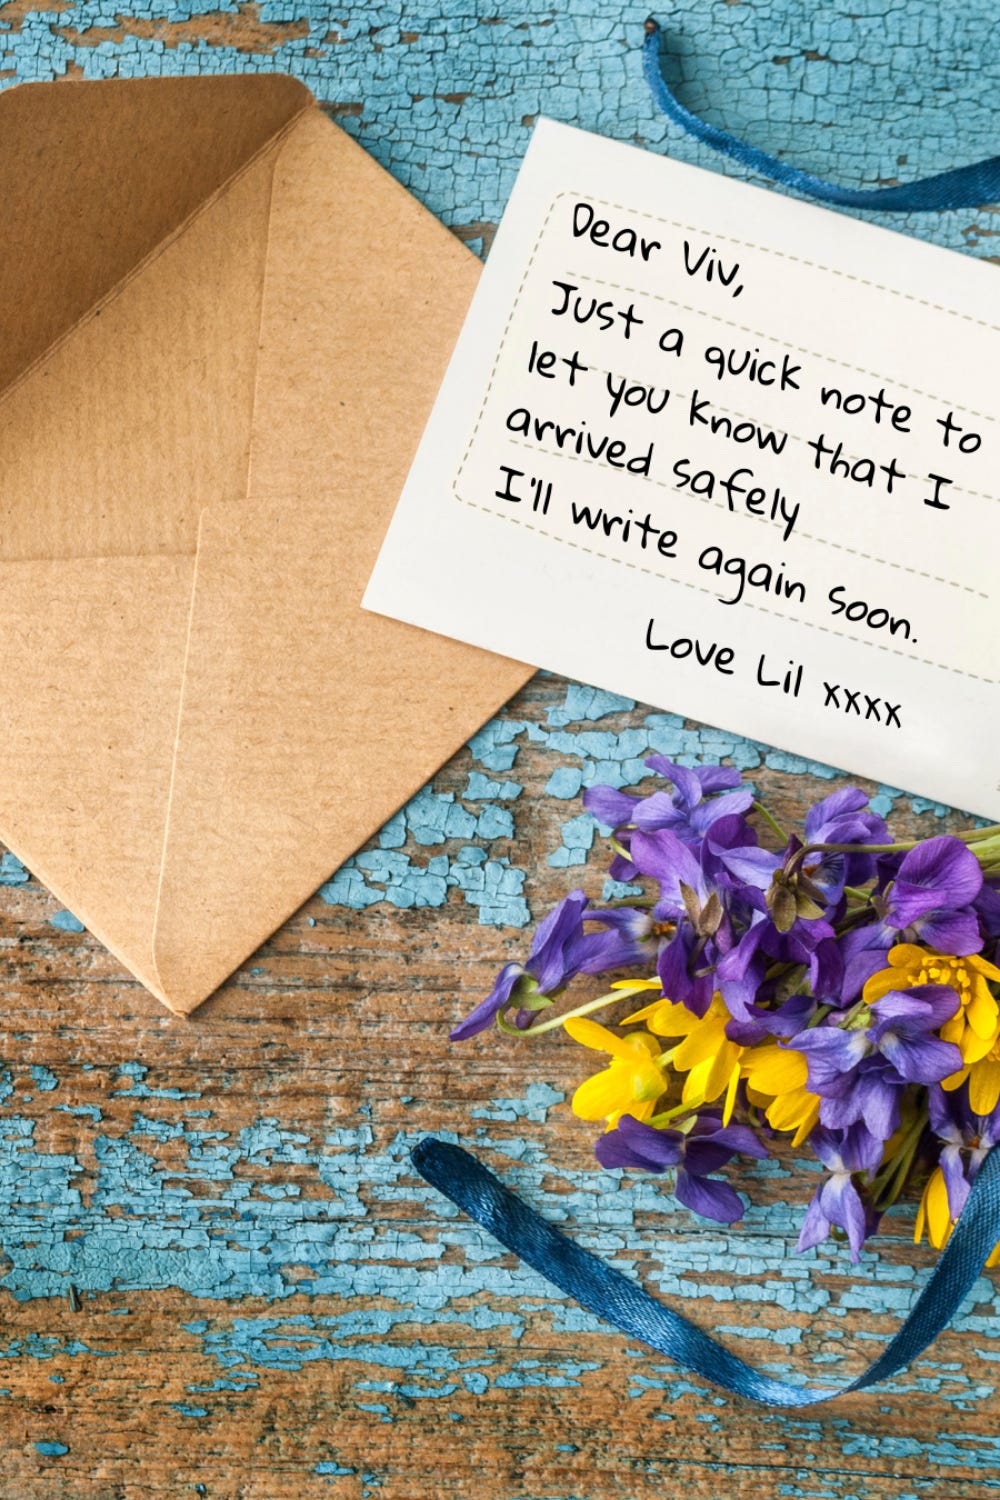 Dear Viv,
Just a quick note to
let you know that I
arrived safely
I'll write again soon.
Love Lil xxxx